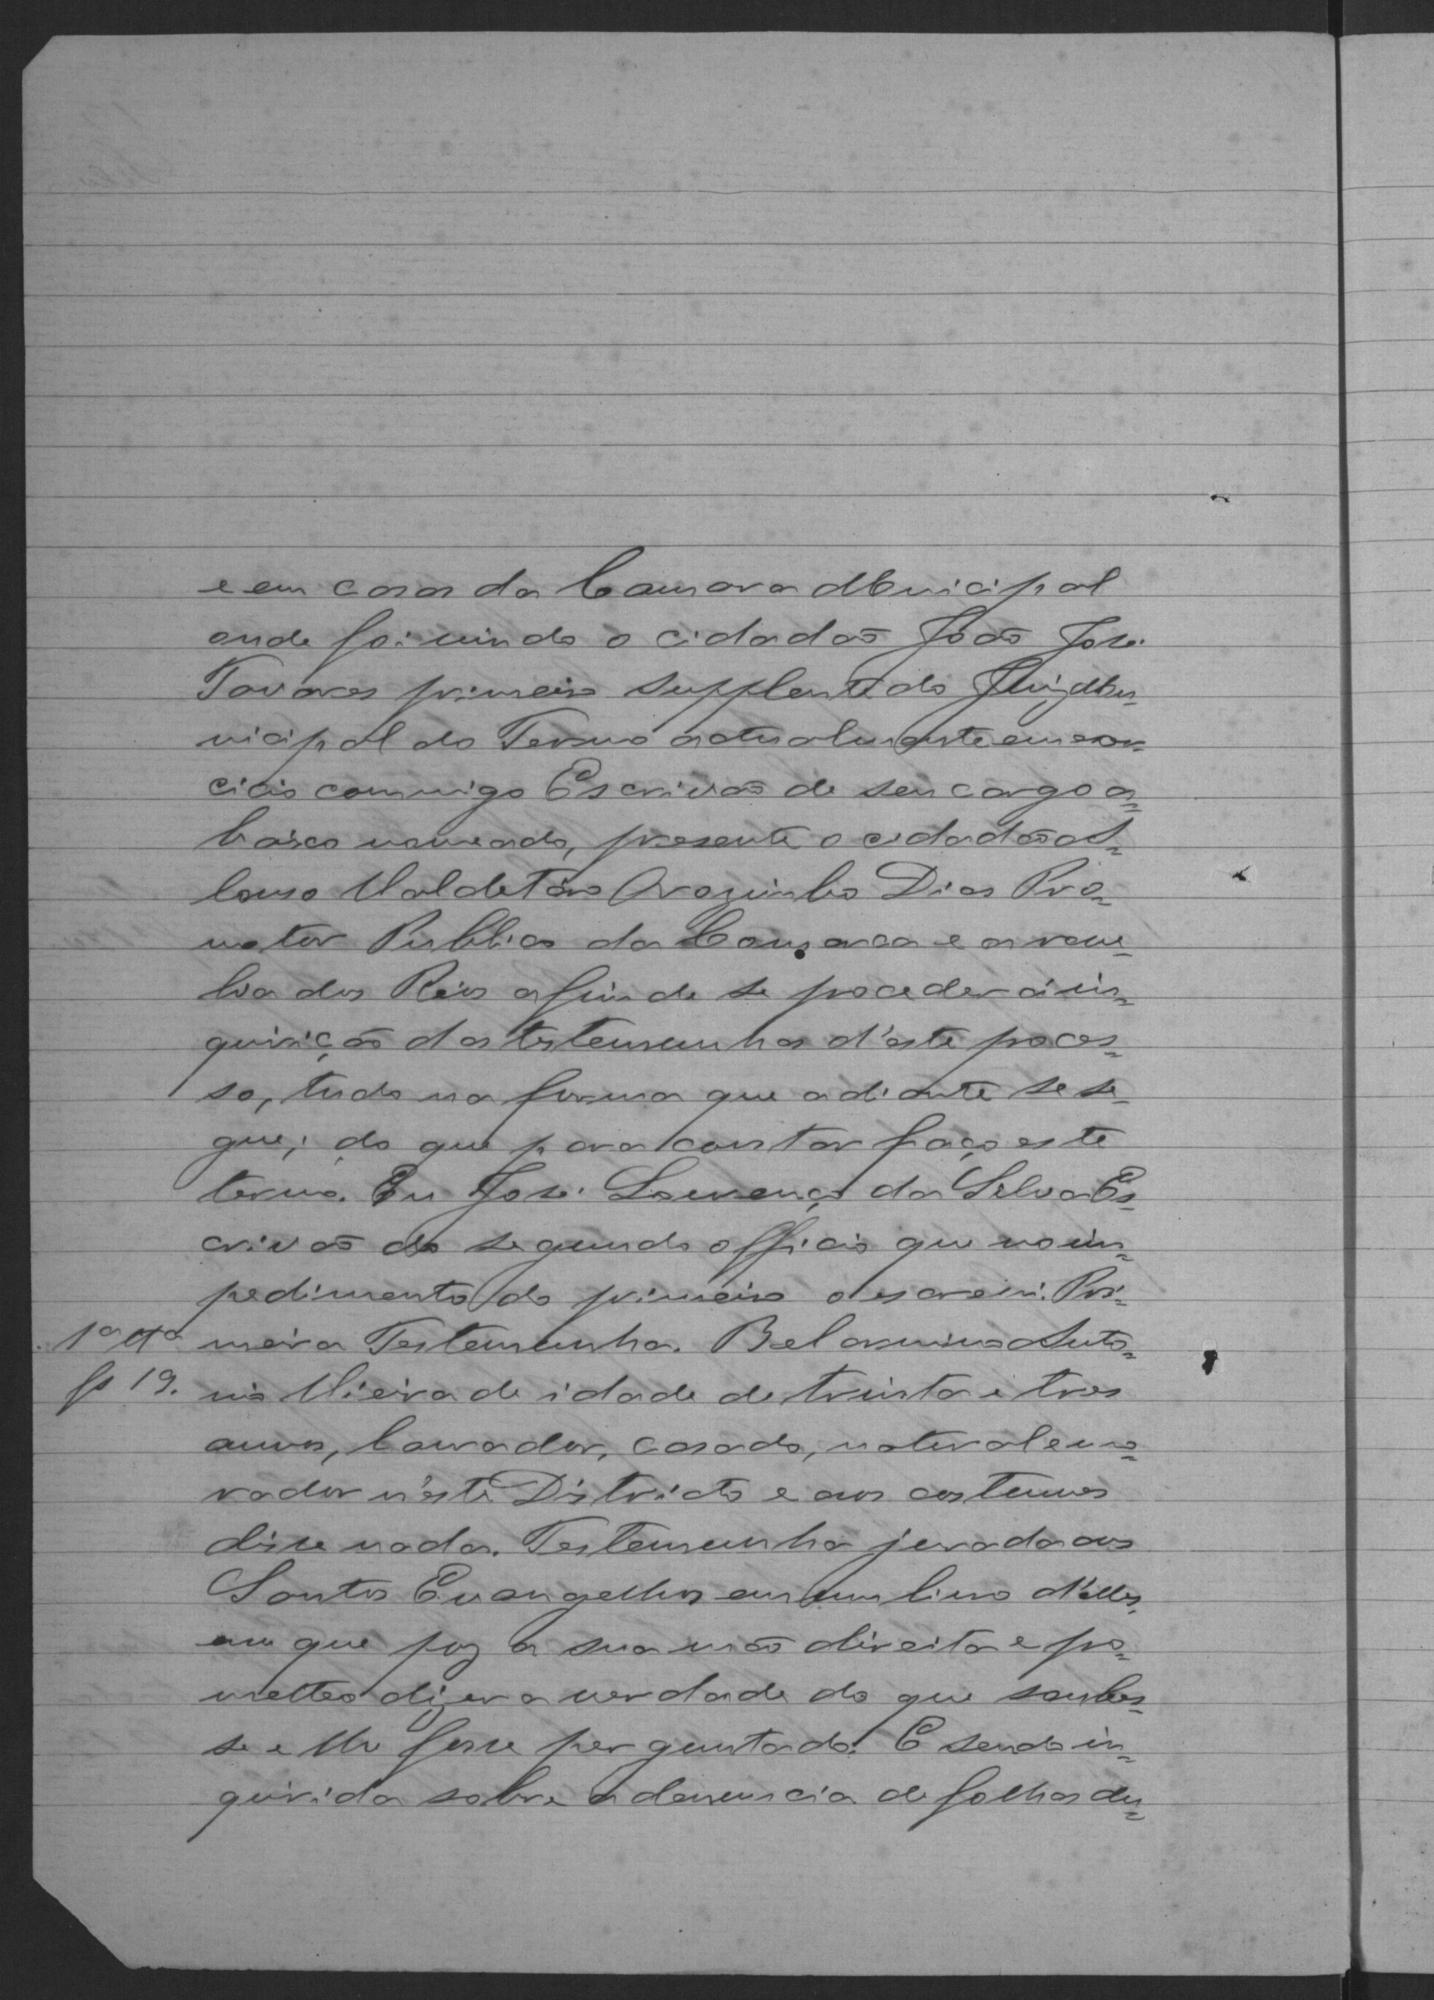 e em casa da Camara Municipal
onde foi vindo o cidadão João José
Tavares primeiro supplente do Juiz Mu=
nicipal do Termo actualmente em exer=
cicio commigo Escrivão de seu cargo a=
baixo nomeado, presente o cidadão A=
lonso Valdetáro Orozimbo Dias Pro=
motor Publico da Comarca e a reve=
lia dos Réos afim de se proceder á in=
quirição das testemunhas d'este proces=
so, tudo na forma que adiante se se=
gue; do que para constar faço este
termo. Eu José Lourenço da Silva Es=
crivão do segundo officio que no im=
pedimento do primeiro o escrevi. Pri=
1ª tª meira Testemunha. Belarmino Anto=
fs 19. nio Vieira de idade de trinta e tres
annos, lavrador, casado, natural e mo=
rador n'este Districto e aos costumes
disse nada. Testemunha jurada aos
Santos Evangelhos em um livro d'elles,
em que poz a sua mão direita e pro=
metteo dizer a verdade do que soubes=
se e lhe fosse perguntado. E sendo in=
quirida sobre a denuncia de folhas du=